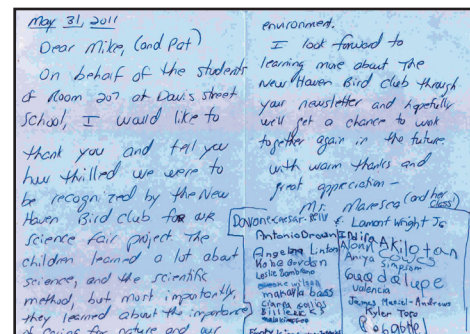 May 31, 2011
Dear Mike, (and Pat)
On behalf of the students
of Room 207 at Davis street
School, I would like to
thank you and tell you
how thrilled we were to
be recognized by the New
Haven Bird Club for our
science fair project. The
children learned a lot about
science, and the scientific
method, but most importantly,
they learned about the importance
of caring for nature and our
environment.
I look forward to
learning more about the
New Haven Bird Club through
your newsletter and hopefully
we'll get a chance to work
together again in the future.
with warm thanks and
great appreciation -
Mr. Maresca (and her class!)
Lamont Wright Jr
Antonio
Angelina Linton
Leslie Zambrano
mahalia bass
Akilotan
Aniya
Simpson
Guadalupe
Valencia
James Maciel-Andrews
Kyler Topa